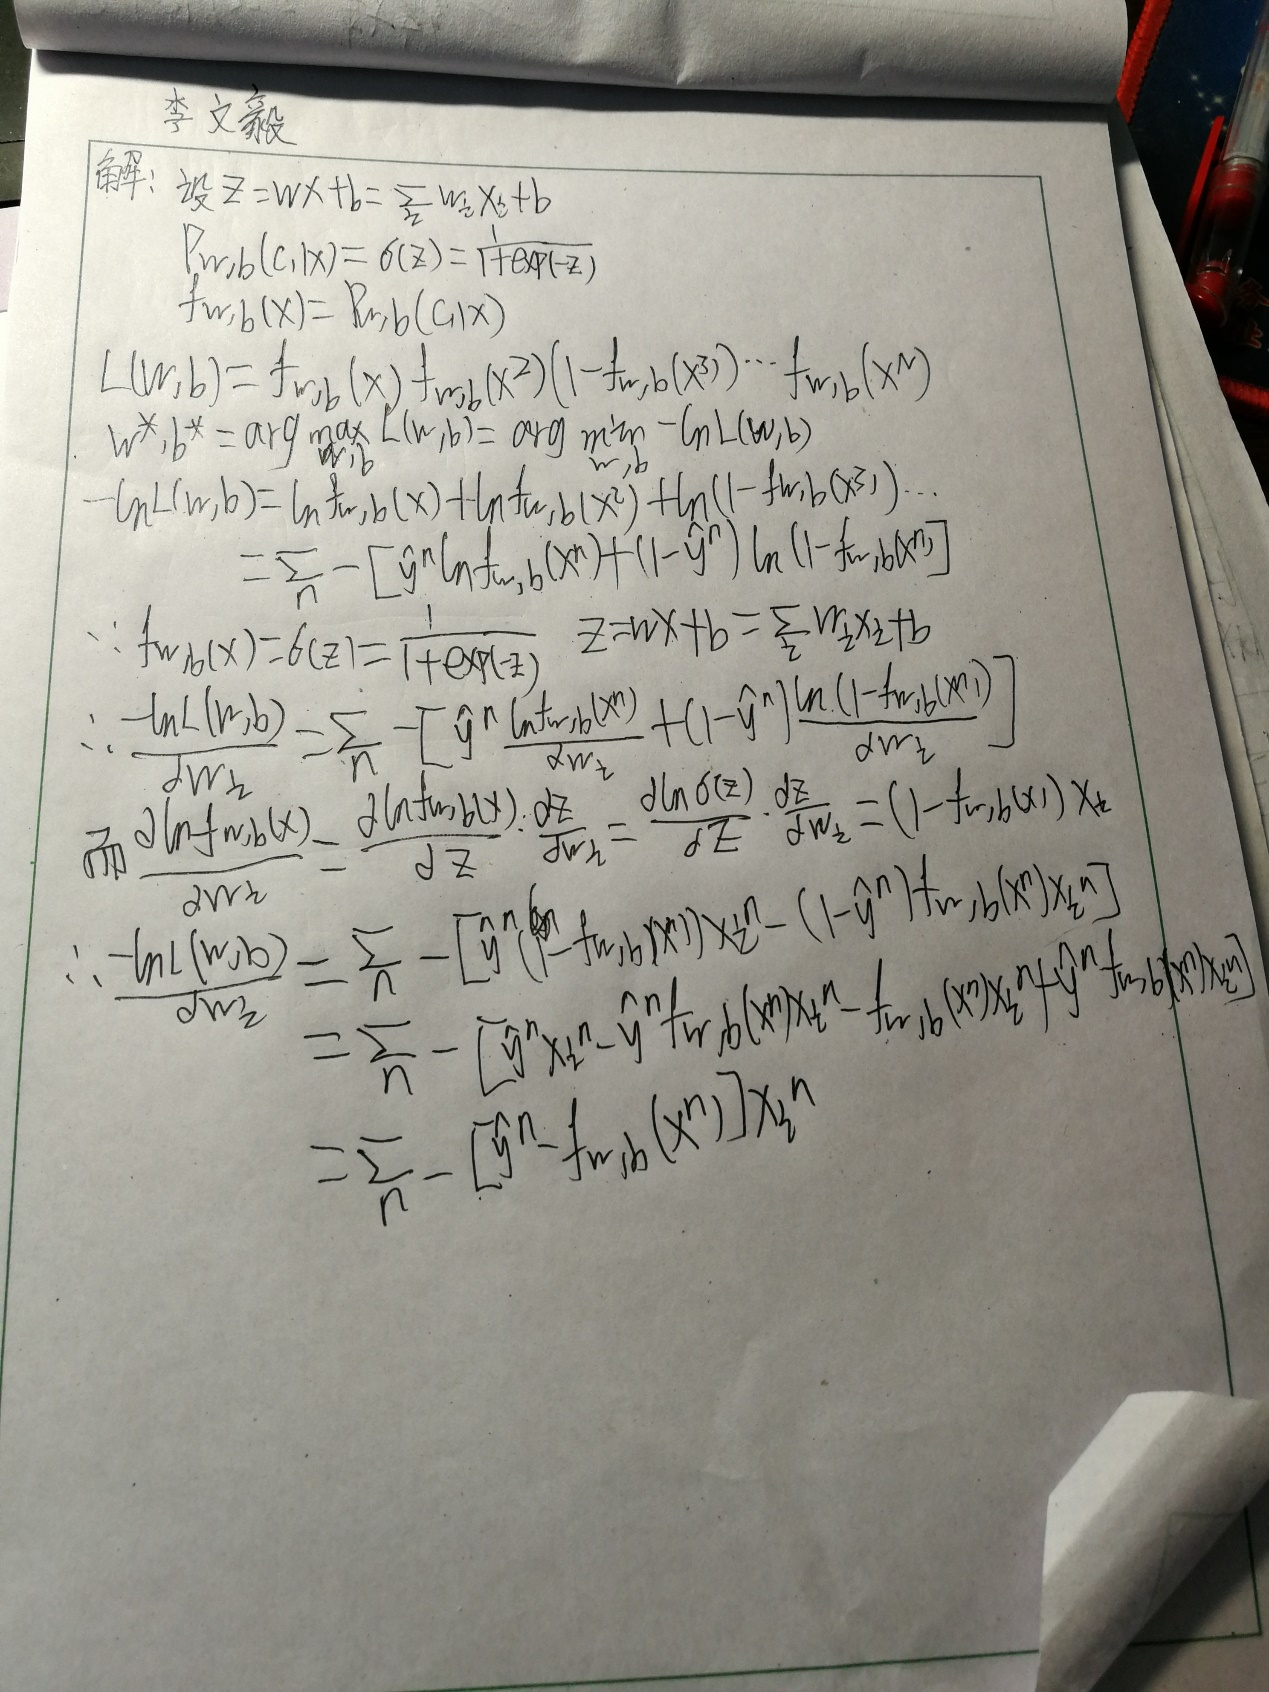 李文毅
解: 设 z=wx+b=∑_i w_i x_i+b
P_{w,b}(C_1|x)=σ(z)=1/(1+exp(-z))
f_{w,b}(x)=P_{w,b}(C_1|x)
L(w,b)=f_{w,b}(x) f_{w,b}(x²)(1-f_{w,b}(x³))⋯f_{w,b}(x^N)
w*,b*=arg max_{w,b} L(w,b)=arg min_{w,b} -lnL(w,b)
-lnL(w,b)=ln f_{w,b}(x)+ln f_{w,b}(x²)+ln(1-f_{w,b}(x³))...
=∑_n -[ŷ^n ln f_{w,b}(x^n)+(1-ŷ^n) ln(1-f_{w,b}(x^n)]
∵ f_{w,b}(x)=σ(z)=1/(1+exp(-z)) z=wx+b=∑_i w_i x_i+b
∴ -lnL(w,b)/∂w_i=∑_n -[ŷ^n ln f_{w,b}(x^n)/∂w_i+(1-ŷ^n) ln(1-f_{w,b}(x^n))/∂w_i]
而 ∂ln f_{w,b}(x)/∂w_i=∂ln f_{w,b}(x)/∂z·∂z/∂w_i=∂lnσ(z)/∂z·∂z/∂w_i=(1-f_{w,b}(x))x_i
∴ -lnL(w,b)/∂w_i=∑_n -[ŷ^n(1-f_{w,b}(x^n))x_i^n-(1-ŷ^n)f_{w,b}(x^n)x_i^n]
=∑_n -[ŷ^n x_i^n-ŷ^n f_{w,b}(x^n)x_i^n-f_{w,b}(x^n)x_i^n+ŷ^n f_{w,b}(x^n)x_i^n]
=∑_n -[ŷ^n-f_{w,b}(x^n)]x_i^n